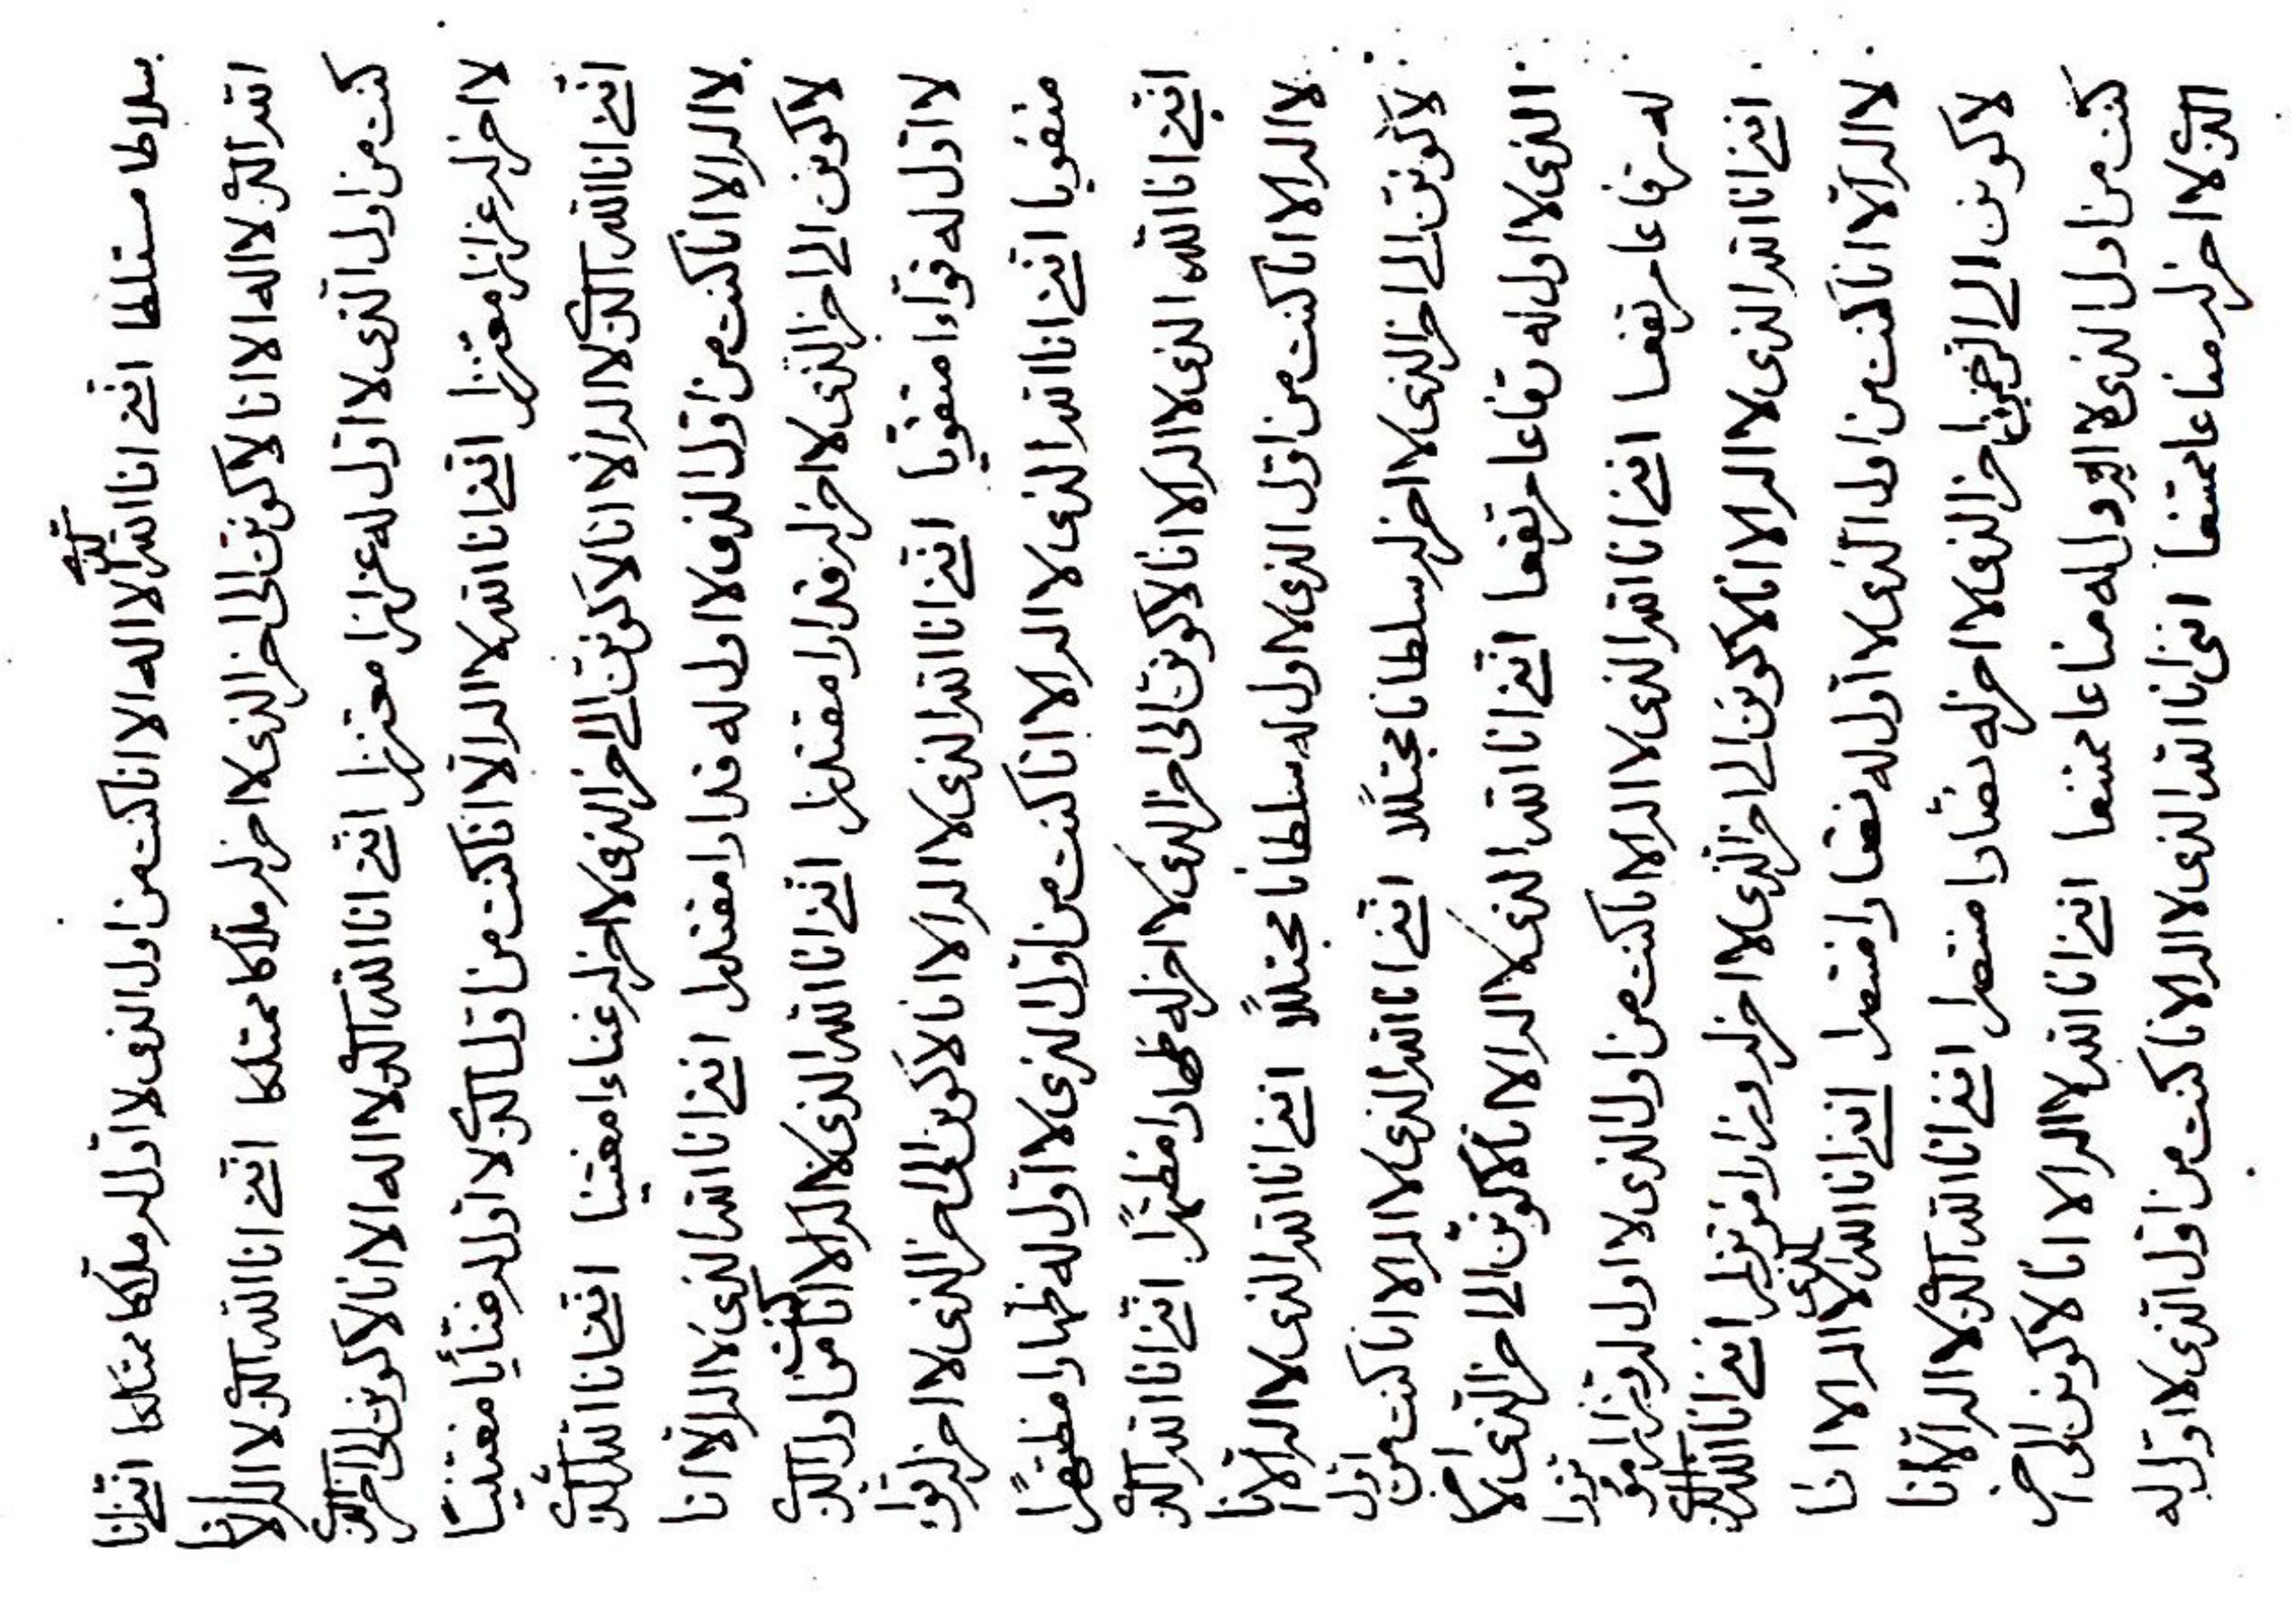 سلاطا مستلطا اننى انا الله الذى لا اله الا انا كنت من اول الذى لا اول له ملاكا ممتلكا اننى انا
الله الذى لا اله الا انا لاكونن الى اخر الذى لا اخر له ملاكا ممتلكا اننى انا الله الذى لا اله الا انا
كنت من اول الذى لا اول له عزازا معتززا اننى انا الله الذى لا اله الا انا لاكونن الى اخر الذى
لا اخر له عزازا معتززا اننى انا الله لا اله الا انا كنت من اول الذى لا اول له غنايا مغتنيا
اننى انا الله الذى لا اله الا انا لاكونن الى اخر الذى لا اخر له غناءا مغتنيا اننى انا الله الذى
لا اله الا انا كنت من اول الذى لا اول له قدارا مقتدرا اننى انا الله الذى لا اله الا انا
لاكونن الى اخر الذى لا اخر له قدارا مقتدرا اننى انا الله الذى لا اله الا انا كنت من اول الذى
لا اول له قواءا متقويا اننى انا الله الذى لا اله الا انا لاكونن الى اخر الذى لا اخر له قواءا
متقويا اننى انا الله الذى لا اله الا انا كنت من اول الذى لا اول له ظهارا مظتهرًا
اننى انا الله الذى لا اله الا انا لاكونن الى اخر الذى لا اخر له ظهارا مظتهرًا اننى انا الله الذى
لا اله الا انا كنت من اول الذى لا اول له سلطانا مجتللًا اننى انا الله الذى لا اله الا انا
لاكونن الى اخر الذى لا اخر له سلطانا مجتللًا اننى انا الله الذى لا اله الا انا كنت من اول
الذى لا اول له رفاعا مرتفعا اننى انا الله الذى لا اله الا انا لاكونن الى اخر الذى لا اخر
له رفاعا مرتفعا اننى انا الله الذى لا اله الا انا كنت من اول الذى لا اول له وزارا موتزرا
اننى انا الله الذى لا اله الا انا لاكونن الى اخر الذى لا اخر له وزارا موتزرا اننى انا الله الذى
لا اله الا انا كنت من اول الذى لا اول له نصارا منتصرا اننى انا الله الذى لا اله الا انا
لاكونن الى اخر الذى لا اخر له نصارا منتصرا اننى انا الله الذى لا اله الا انا
كنت من اول الذى لا اول له مناعا ممتنعا اننى انا الله لا اله الا انا لاكونن الى اخر
الذى لا اخر له مناعا ممتنعا اننى انا الله الذى لا اله الا انا كنت من اول الذى لا اول له